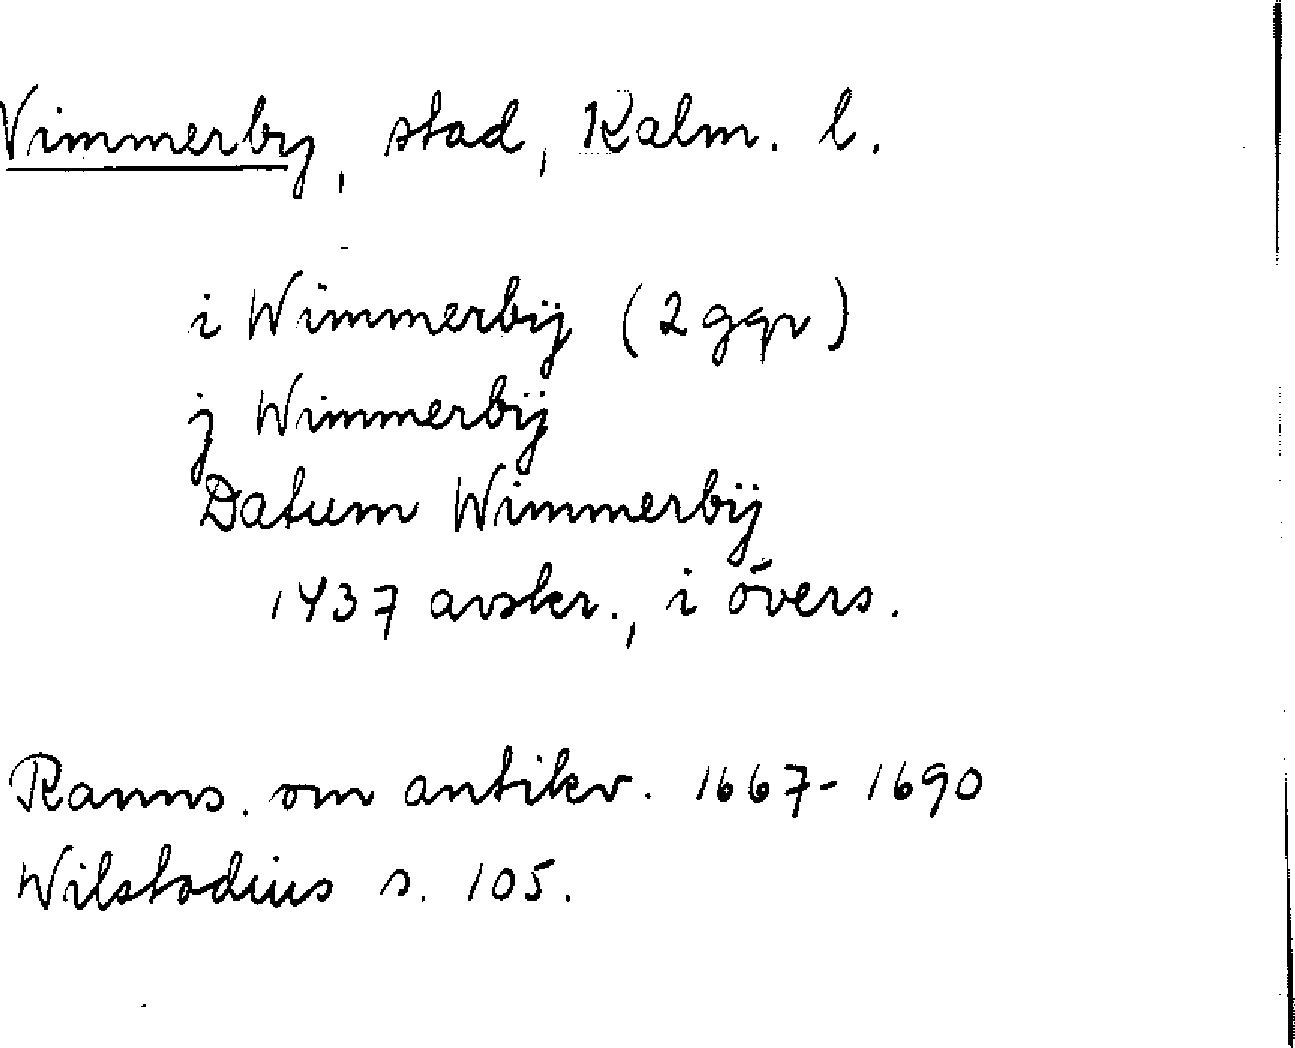 Vimmerby, stad, Kalm. l.
i Wimmerbÿ (2 ggr)
j Wimmerbÿ
Datum Wimmerbÿ
1437 avskr., i övers.
Ranns. om antikv. 1667-1690
Wilstadius s. 105.